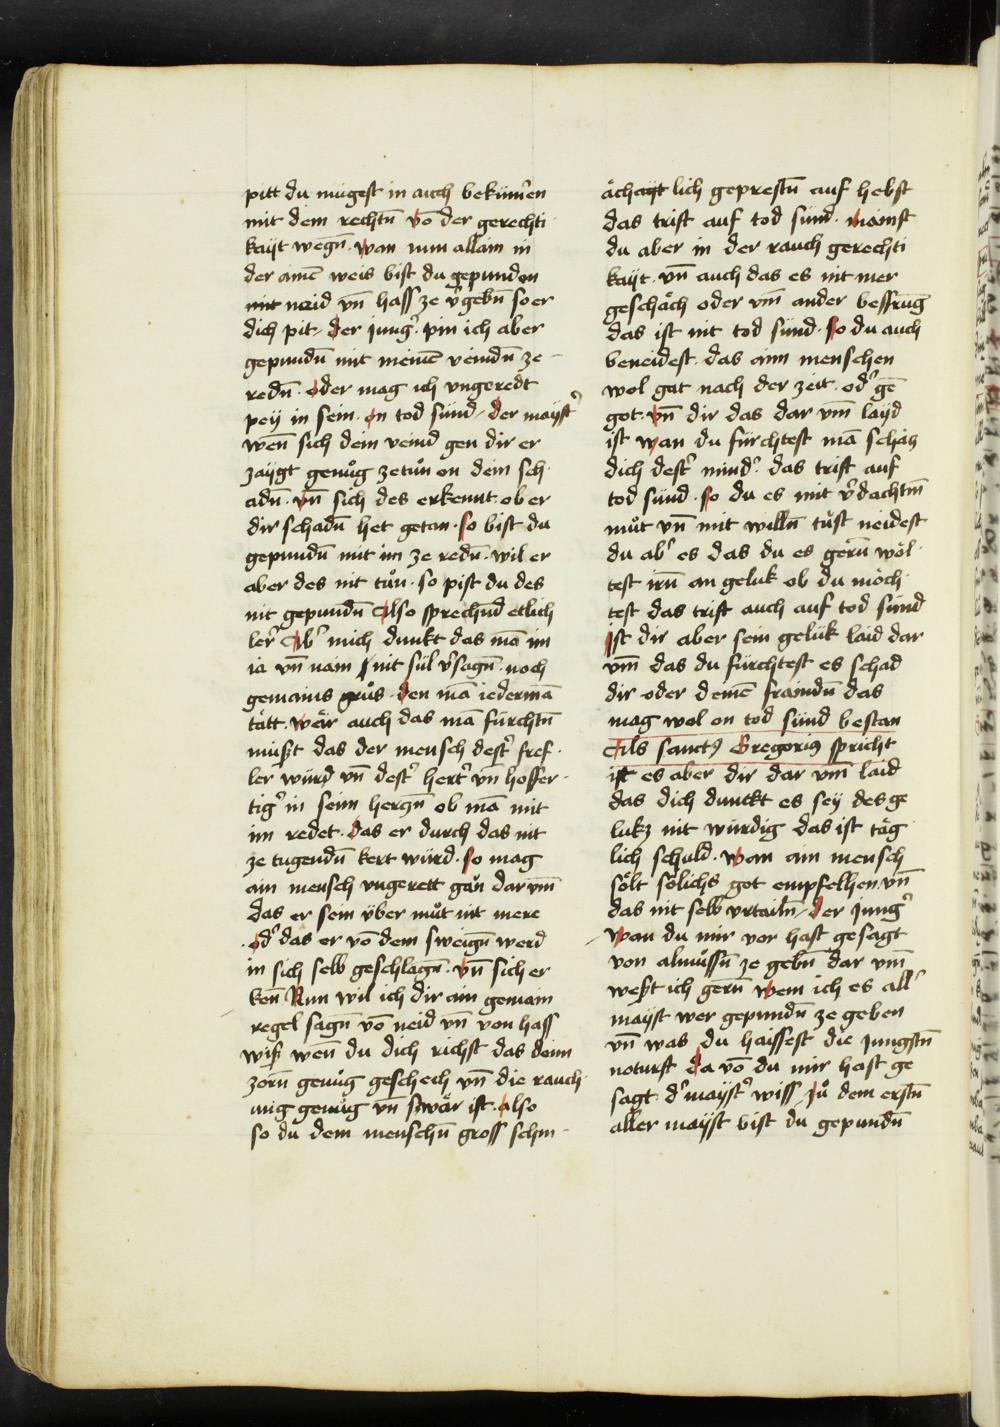 pitt du mügest in auch bekümen̄
mit dem rechtn̄ võ der gerechti
kayt wegn̄. wan nun allain in
der ainē weis bist du gepunden
mit neid vn̄ hass ze v̉gebn̄ so er
dich pit. der iung̉. pin ich aber
gepundn̄ mit meinē veindn̄ ze
redn̄. oder mag ich vngeredt
pey in sein. on tod sünd. der mayst̉
wen̄ sich dein veind gen dir er
zaygt genůg zetůn on dem sch
adn̄. vn̄ sich des erkennt. ob er
dir schadn̄ het getan. so bist du
gepundn̄ mit im ze redn̄. wil er
aber des nit tůn. so pist du des
nit gepundn̄ Also sprechn̄d etlich
ler̉ Ab̉ mich dunkt das mā im
ia vn̄ nain nit sül v̉sagn̄. noch
gemains grůs. den mā iedermā
tätt. wär auch das mā fürchtn̄
müßt das der mensch dest̉ fref
ler würd vn̄ dest̉ hert̉ vn̄ hoffer
tig̉ in seim herczn̄ ob mā mit
im redet. das er durch das nit
ze tugendn̄ kert würd. so mag
ain mensch vngerett gän dar vm̄
das er sein über můt nit mere
. od̉ das er võ dem sweign̄ werd
in sich selb geschlagn̄. vn̄ sich er
ken̄ Nun wil ich dir ain gemain
regel sagn̄ võ neid vn̄ von hass
wiß wen̄ du dich richst das deim
zorn̄ genůg geschech vn̄ die rauch
ung genůg vn̄ swär ist. also
so du dem menschn̄ gross schm
ächayt lich geprestn̄ auf hebst
das trift auf tod sünd. namst
du aber in der rauch gerechti
kayt. vn̄ auch das es nit mer
geschäch oder vm̄ ander bessrūg
das ist nit tod sünd. so du auch
beneidest. das ainn menschen
wol gat nach der zeit. od̉ gē
got. vn̄ dir das dar vm̄ layd
ist wan du fürchtest mā schäcz
dich dest̉ mind̉. das trift auf
tod sünd. so du es mit v̉dachtm̄
můt vn̄ mit willn̄ tůst neidest
du ab̉ es das du es gern̄ wöl
test irn̄ an geluk ob du möch
test das trift auch auf tod sünd
Ist dir aber sein gelük laid dar
vm̄ das du fürchtest es schad
dir oder deinē fraindn̄ das
mag wol on tod sünd bestan
Als sanctꝰ Gregoriꝰ spricht
ist es aber dir dar vm̄ laid
das dich dunckt es sey des ge
lukz nit würdig das ist täg
lich schuld. wan ain mensch
sölt sölichs got empfelhen. vn̄
das nit selb vrtailn̄. der iung̉
wan du mir vor hast gesagt
von almůssn̄ ze gebn̄ dar vm̄
weßt ich gern̄ wem ich es all̉
mayst wer gepundn̄ ze geben
vn̄ was du haissest die iungstn̄
noturft da võ du mir hast ge
sagt. d̉ mayst̉ wiss zů dem erstn̄
aller mayst bist du gepundn̄